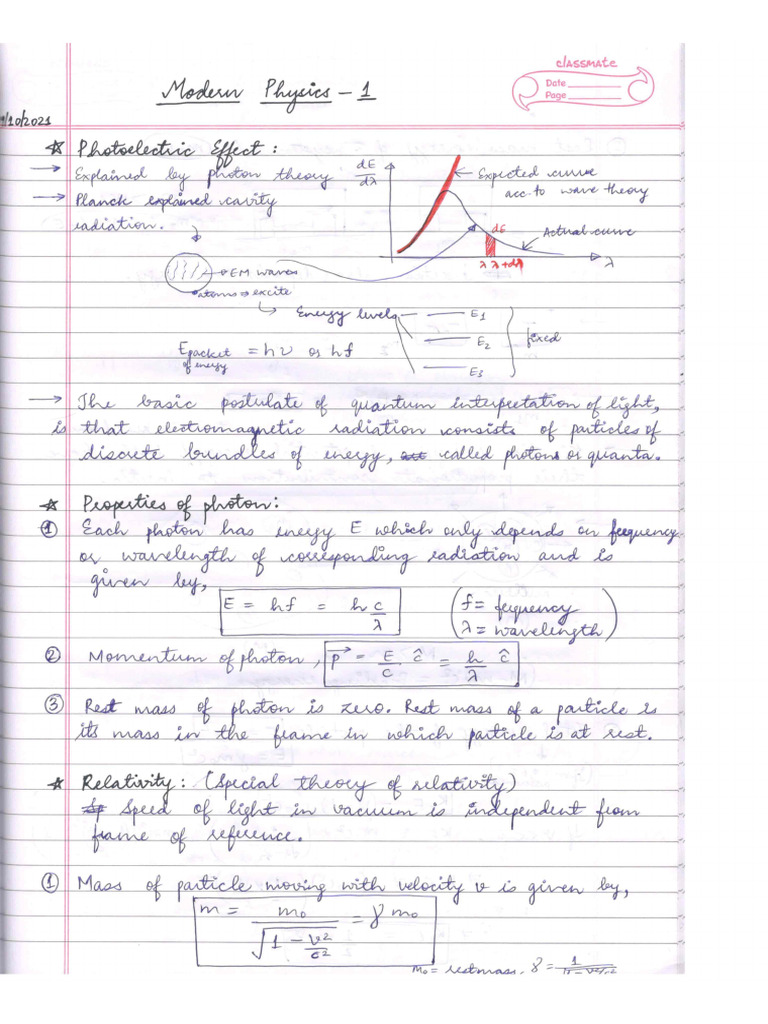 classmate
Date
Page
Modern Physics - 1
/10/2021
☆ Photoelectric Effect :
→ Explained by photon theory
→ Planck explained cavity
radiation.
dE/dλ
Expected curve
acc. to wave theory
dE
Actual curve
λ λ+dλ
λ
→ EM waves
atoms → excite
↳ Energy levels
E1
E2
E3
fixed
Epacket = hν or hf
of energy
→ The basic postulate of quantum interpretation of light,
is that electromagnetic radiation consists of particles of
discrete bundles of energy, called photons or quanta.
☆ Properties of photon:
① Each photon has energy E which only depends on frequency
or wavelength of corresponding radiation and is
given by,
E = hf = h c/λ
(f = fequency
λ = wavelength)
② Momentum of photon, p⃗ = E/c ĉ = h/λ ĉ
③ Rest mass of photon is zero. Rest mass of a particle is
its mass in the frame in which particle is at rest.
☆ Relativity : (Special theory of relativity)
Speed of light in vacuum is independent from
frame of reference.
① Mass of particle moving with velocity v is given by,
m = m₀/√(1 - v²/c²) = γ m₀
m₀ = rest mass, γ = 1/√(1 - v²/c²)